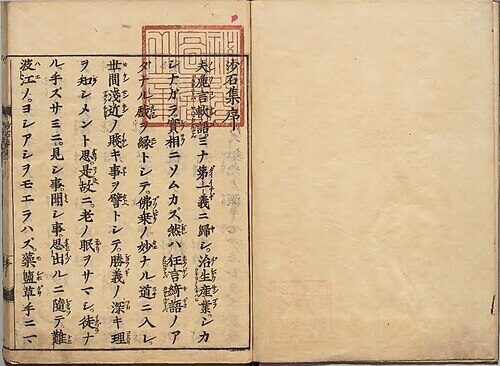 沙石集序
夫麁言軟語ミナ第一義ニ歸シ。治生産業シカ
シナガラ實相ニソムカズ。然ハ狂言綺語ノア
ダナル戯ヲ縁トシテ。佛乗ノ妙ナル道ニ入レ
世間淺近ノ賤キ事ヲ譬トシテ。勝義ノ深キ理
ヲ知シメント思。是故ニ。老ノ眠ヲサマシ。徒ナ
ル手ズサミニ。見シ事聞シ事。思出ルニ隨テ。難
波江ノ。ヨシアシヲモエラハズ。藻鹽草手ニマ